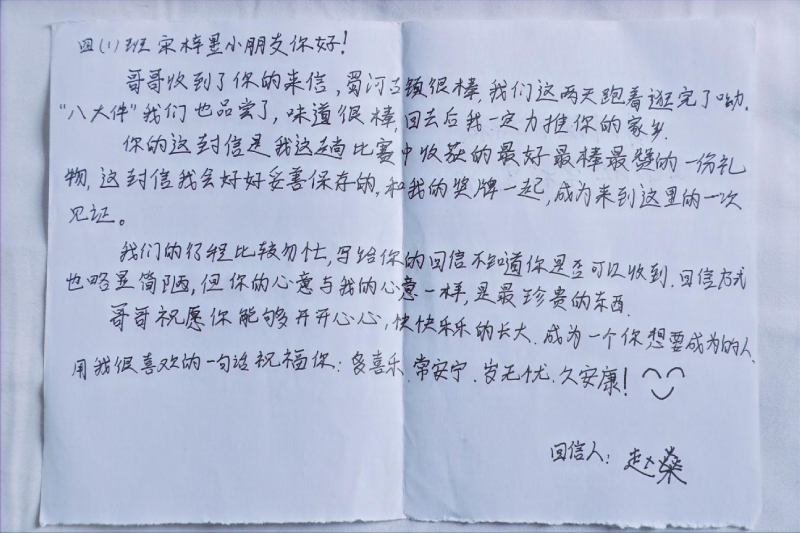 四(1)班 宋梓墨小朋友你好!
哥哥收到了你的来信,蜀河古镇很棒,我们这两天跑着逛完了呦.
“八大件”我们也品尝了,味道很棒,回去后我一定力推你的家乡.
你的这封信是我这趟比赛中收获的最好最棒最赞的一份礼
物,这封信我会好好妥善保存的,和我的奖牌一起,成为来到这里的一次
见证。
我们的行程比较匆忙,写给你的回信不知道你是否可以收到.回信方式
也略显简陋,但你的心意与我的心意一样,是最珍贵的东西.
哥哥祝愿你能够开开心心,快快乐乐的长大.成为一个你想要成为的人.
用我很喜欢的一句话祝福你:多喜乐.常安宁.岁无忧.久安康!
回信人:赵燊